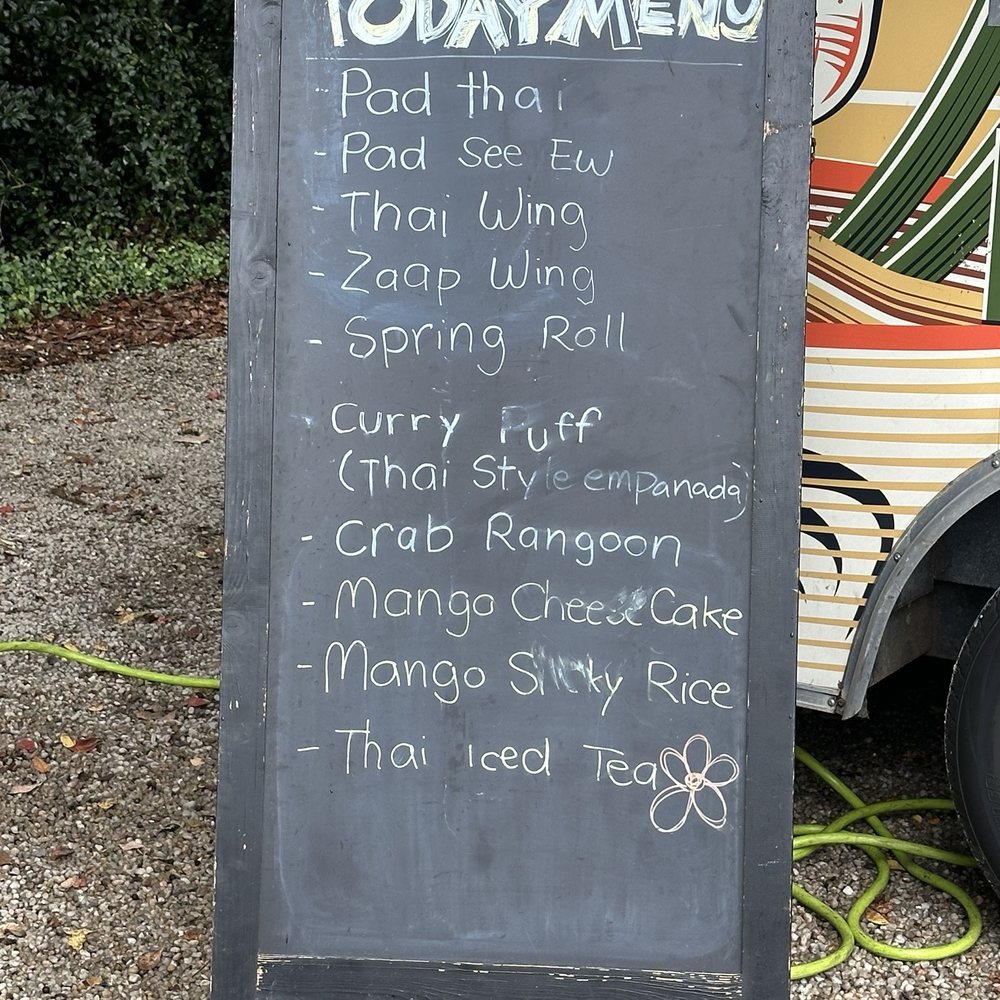 TODAY MENU
- Pad thai
- Pad See Ew
- Thai Wing
- Zaap Wing
- Spring Roll
- Curry Puff
(Thai Style empanada)
- Crab Rangoon
- Mango Cheese Cake
- Mango Sticky Rice
- Thai Iced Tea